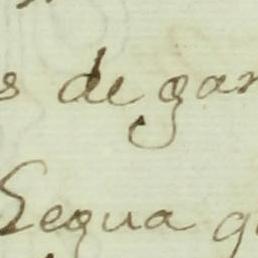 s de gan
Legua q